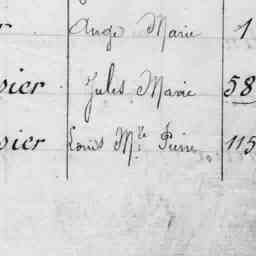 r Ange Marie 1
sier Jules Marie 58
sier Louis Mie Pierre 115